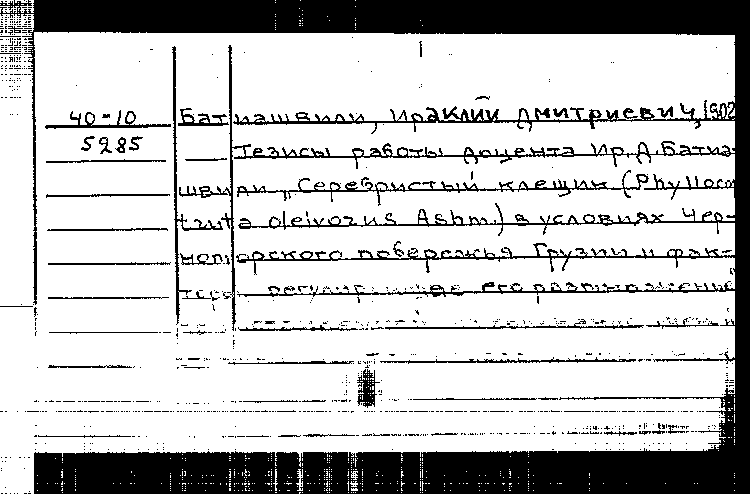 40-10 Батиашвили, Ираклий Дмитриевич, 1902
5285 Тезисы работы доцента Ир. Д. Батиа-
швили „Серебристый клещик (Phyllocop
truta oleivorus Ashm.) в условиях Чер-
номорского побережья Грузии и фак-
торы регулирующие его размножение